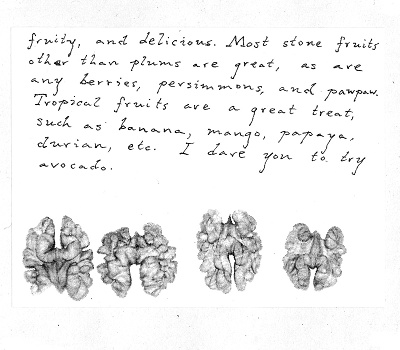 fruity, and delicious. Most stone fruits
other than plums are great, as are
any berries, persimmons, and pawpaw.
Tropical fruits are a great treat,
such as banana, mango, papaya,
durian, etc. I dare you to try
avocado.